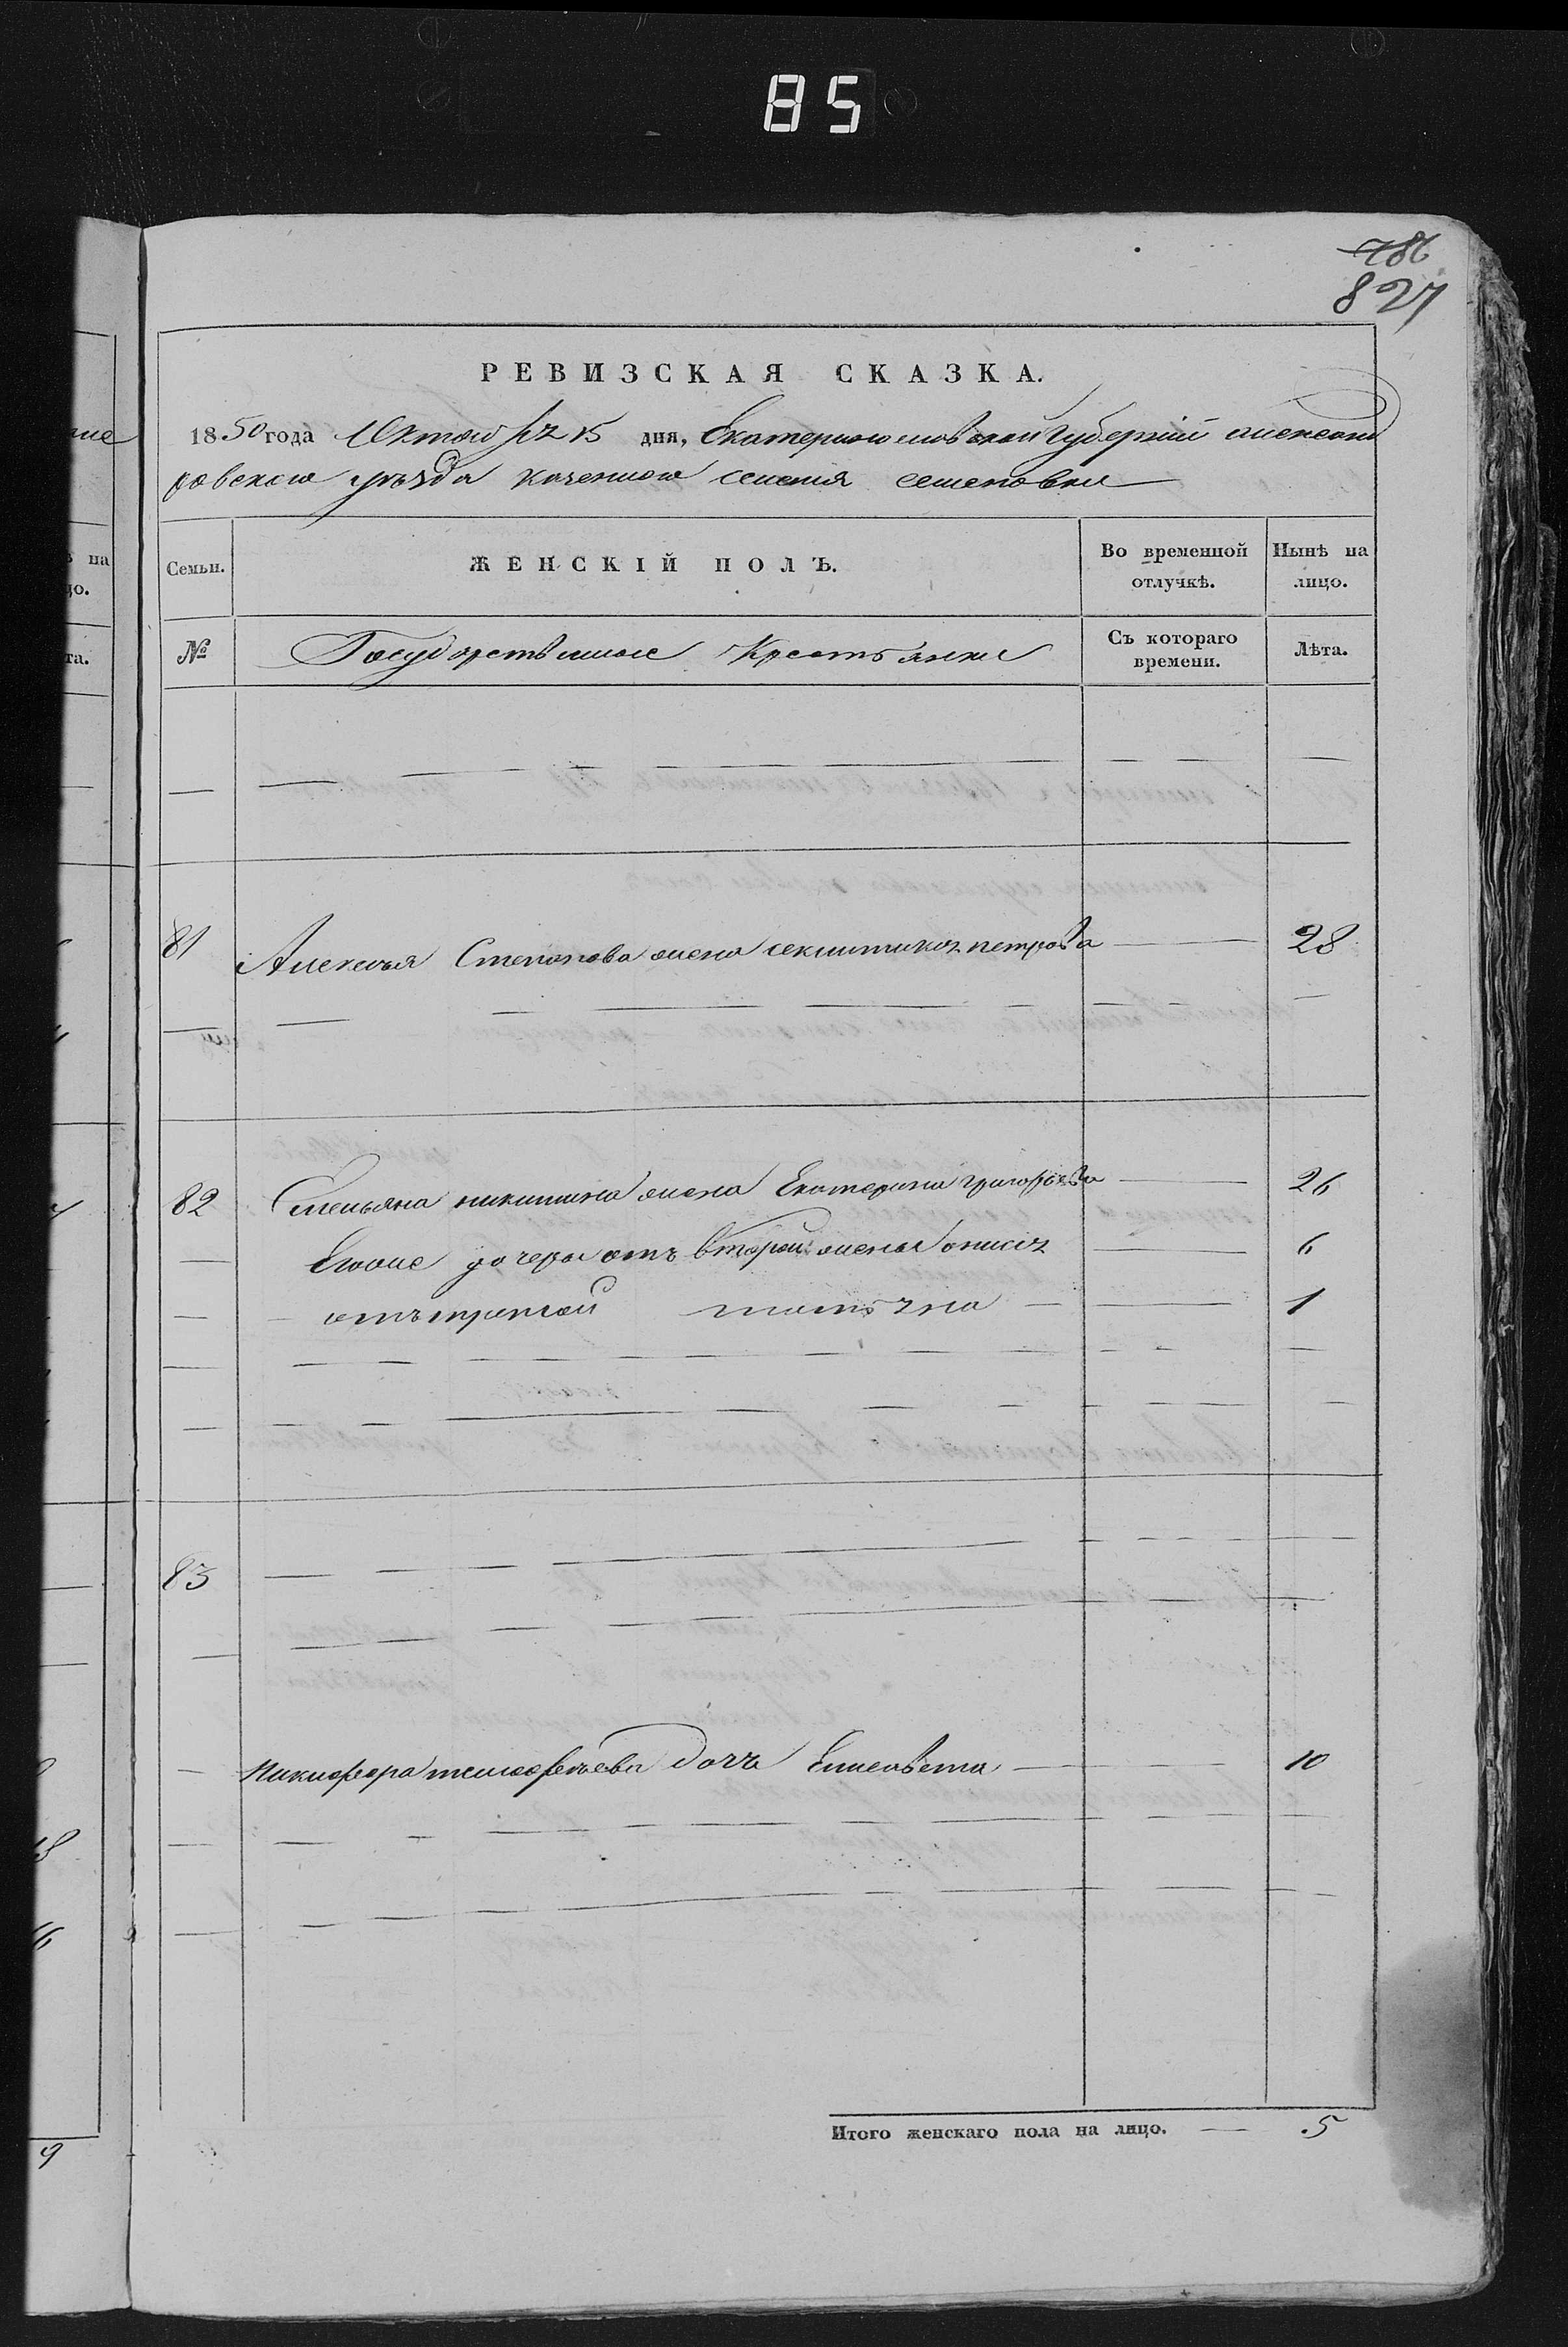 85
786
827
РЕВИЗСКАЯ СКАЗКА.
1850 года Октября 15 дня, Екатеринославской Губерніи александ
ровского уѣзда казенного селенія семеновки
на
Семьи.
ЖЕНСКІЙ ПОЛЪ.
Во временной отлучкѣ.
Нынѣ на лицо.
№
Государственные Крестьянки
Съ котораго времени.
Лѣта.
81 Алексѣя Степанова жена петрова — 28
82 Емельяна никитина жена Екатерина григорьева — 26
Егоже дочери отъ второй жены — 6
отъ третей татьяна — 1
83
Никифора тимофеева дочь Елисавета — 10
Итого женскаго пола на лицо. — 5
9